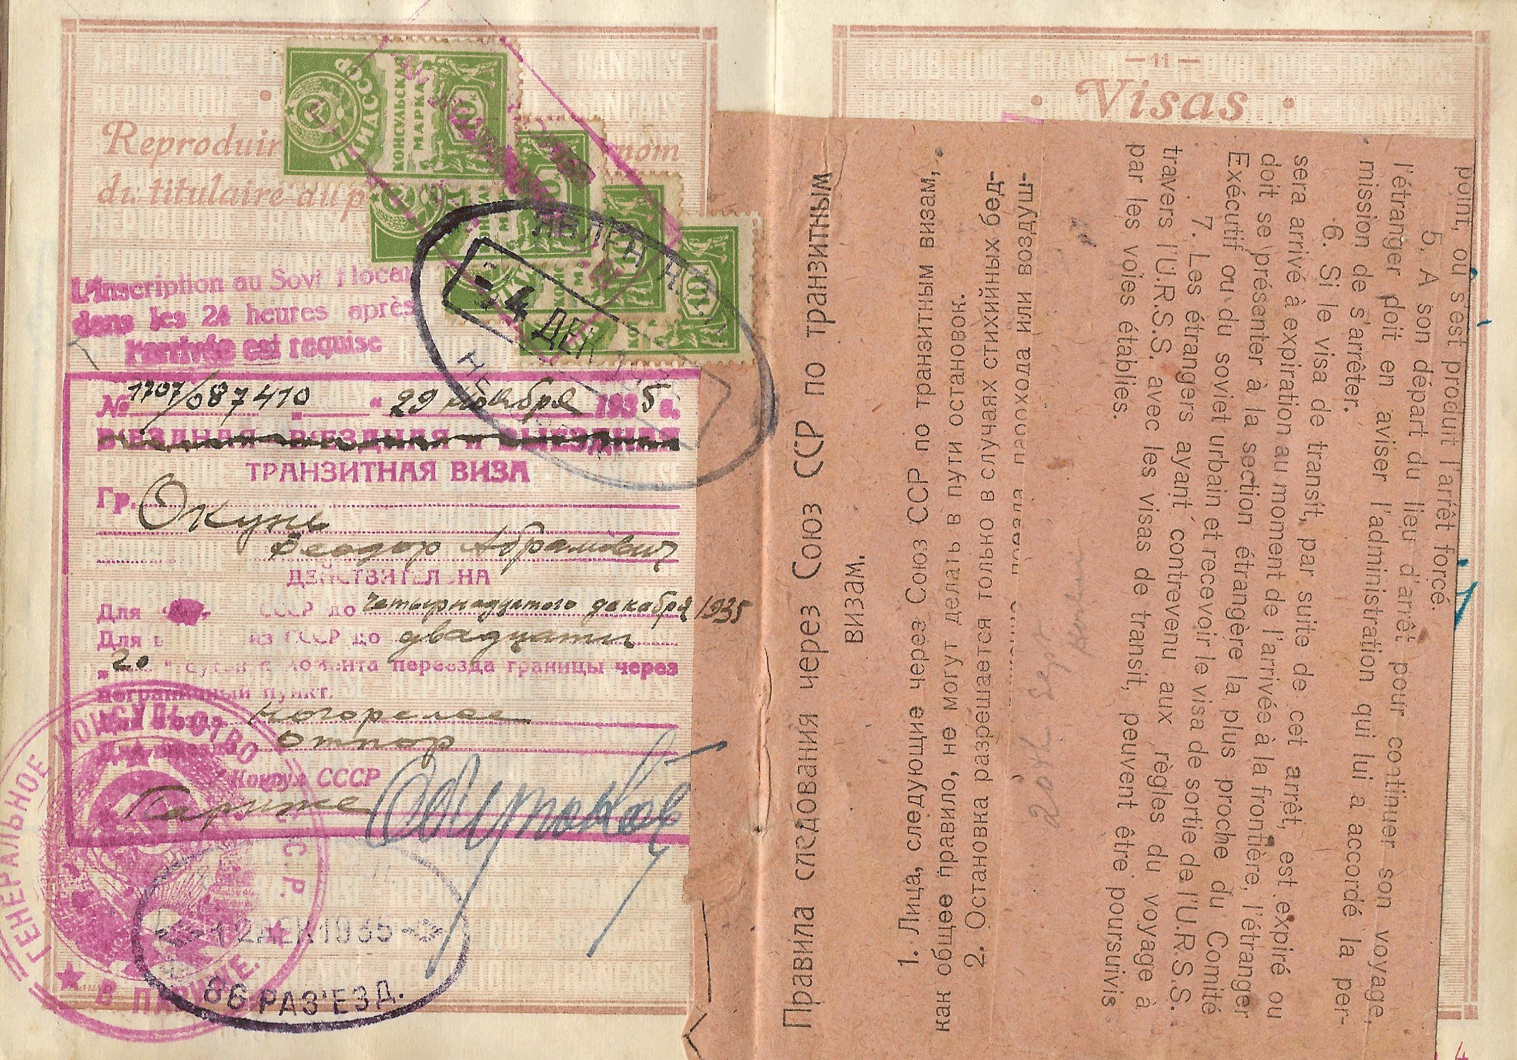 Reproduire
nom
du titulaire du p
НКИД СССР
КОНСУЛЬСКАЯ
МАРКА
10
10
10
L'inscription au Soviet local
dans les 24 heures après
l'arrivée est requise
- 4 ДЕК
НЕГОРЕЛОЕ
№ 1707/087410 " 29 ноября 1935 г.
ВЪЕЗДНАЯ ВЪЕЗДНАЯ и ВЫЕЗДНАЯ
ТРАНЗИТНАЯ ВИЗА
Гр. Окунь
Теодор Абрамович
ДЕЙСТВИТЕЛЬНА
Для СССР до четырнадцатого декабря 1935
Для из СССР до двадцати
"20" суток с момента переезда границы через
пограничный пункт.
Негорелое
Отпор
Консул СССР
Париже
ГЕНЕРАЛЬНОЕ КОНСУЛЬСТВО С.С.С.Р.
В ПАРИЖЕ.
12 ДЕК 1935
86 РАЗ'ЕЗД.
— 11 —
Visas
Правила следования через Союз ССР по транзитным
визам.
1. Лица, следующие через Союз ССР по транзитным визам,
как общее правило, не могут делать в пути остановок.
2. Остановка разрешается только в случаях стихийных бед-
поезда, парохода или воздуш-
20th Sept
point, ou s'est produit l'arrêt forcé.
5. A son départ du lieu d'arrêt pour continuer son voyage,
l'étranger doit en aviser l'administration qui lui a accordé la per-
mission de s'arrêter.
6. Si le visa de transit, par suite de cet arrêt, est expiré ou
sera arrivé à expiration au moment de l'arrivée à la frontière, l'étranger
doit se présenter à la section étrangère la plus proche du Comité
Exécutif ou du soviet urbain et recevoir le visa de sortie de l'U.R.S.S.
7. Les étrangers ayant contrevenu aux règles du voyage à
travers l'U.R.S.S. avec les visas de transit, peuvent être poursuivis
par les voies établies.